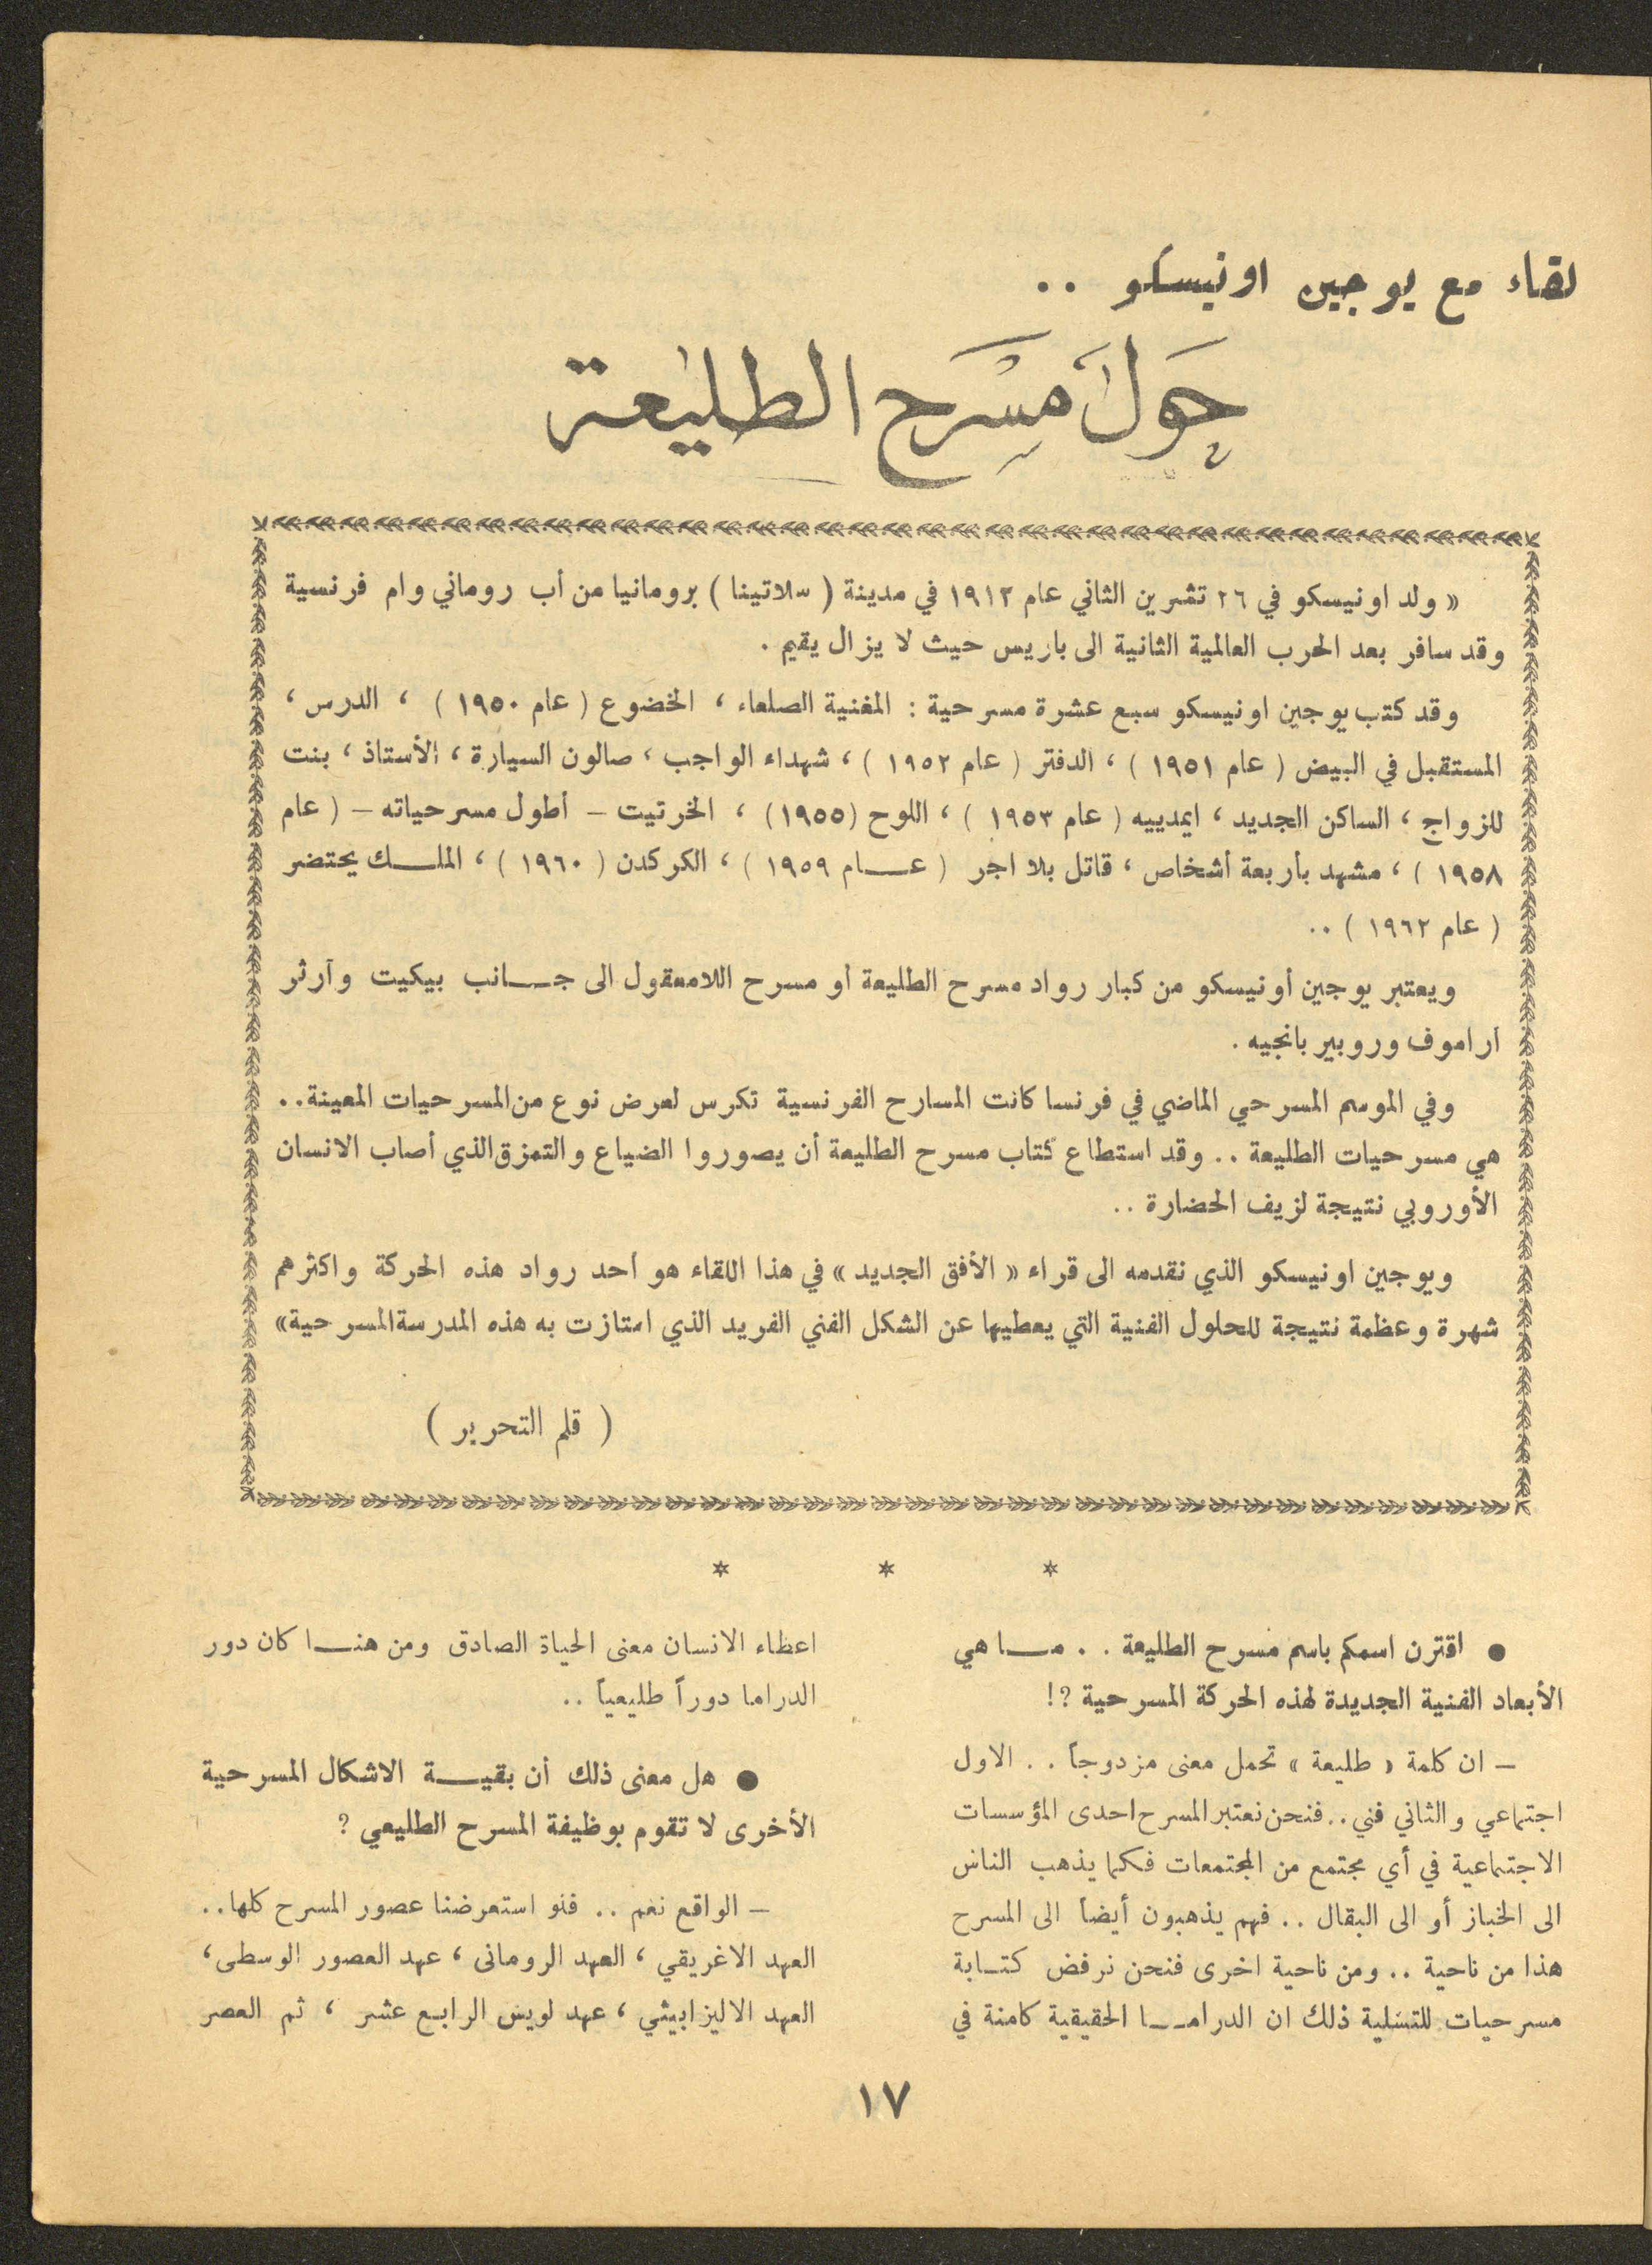 لقاء مع يوجين اونيسكو ..
حَولَ مسْرَح الطليعة
« ولد اونيسكو في ٢٦ تشرين الثاني عام ١٩١٣ في مدينة ( سلاتينا ) برومانيا من أب روماني وام فرنسية
وقد سافر بعد الحرب العالمية الثانية الى باريس حيث لا يزال يقيم .
وقد كتب يوجين اونيسكو سبع عشرة مسرحية : المغنية الصلعاء ، الخضوع ( عام ١٩٥٠ ) ، الدرس ،
المستقبل في البيض ( عام ١٩٥١ ) ، الدفتر ( عام ١٩٥٢ ) ، شهداء الواجب ، صالون السيارة ، الأستاذ ، بنت
للزواج ، الساكن الجديد ، ايمدييه ( عام ١٩٥٣ ) ، اللوح (١٩٥٥) ، الخرتيت – أطول مسرحياته – ( عام
١٩٥٨ ) ، مشهد بأربعة أشخاص ، قاتل بلا اجر ( عـــام ١٩٥٩ ) ، الكركدن ( ١٩٦٠ ) ، الملـــك يحتضر
( عام ١٩٦٢ ) ..
ويعتبر يوجين أونيسكو من كبار رواد مسرح الطليعة أو مسرح اللامعقول الى جـــانب بيكيت وآرثر
اراموف وروبير بانجيه .
وفي الموسم المسرحي الماضي في فرنسا كانت المسارح الفرنسية تكرس لعرض نوع من المسرحيات المعينة..
هي مسرحيات الطليعة .. وقد استطاع كتاب مسرح الطليعة أن يصوروا الضياع والتمزق الذي أصاب الانسان
الأوروبي نتيجة لزيف الحضارة ..
ويوجين اونيسكو الذي نقدمه الى قراء « الأفق الجديد » في هذا اللقاء هو أحد رواد هذه الحركة واكثرهم
شهرة وعظمة نتيجة للحلول الفنية التي يعطيها عن الشكل الفني الفريد الذي امتازت به هذه المدرسة المسرحية»
( قلم التحرير )
* * *
● اقترن اسمكم باسم مسرح الطليعة . . مـــا هي
الأبعاد الفنية الجديدة لهذه الحركة المسرحية ؟!
– ان كلمة « طليعة » تحمل معنى مزدوجاً . . الاول
اجتماعي والثاني فني .. فنحن نعتبر المسرح احدى المؤسسات
الاجتماعية في أي مجتمع من المجتمعات فكما يذهب الناس
الى الخباز أو الى البقال .. فهم يذهبون أيضاً الى المسرح
هذا من ناحية .. ومن ناحية اخرى فنحن نرفض كتـابة
مسرحيات للتسلية ذلك ان الدرامـــا الحقيقية كامنة في
اعطاء الانسان معنى الحياة الصادق ومن هنـــا كان دور
الدراما دوراً طليعياً ..
● هل معنى ذلك أن بقيـــة الاشكال المسرحية
الأخرى لا تقوم بوظيفة المسرح الطليعي ؟
– الواقع نعم .. فلو استعرضنا عصور المسرح كلها..
العهد الاغريقي ، العهد الروماني ، عهد العصور الوسطى ،
العهد الاليزابيثي ، عهد لويس الرابع عشر ، ثم العصر
١٧